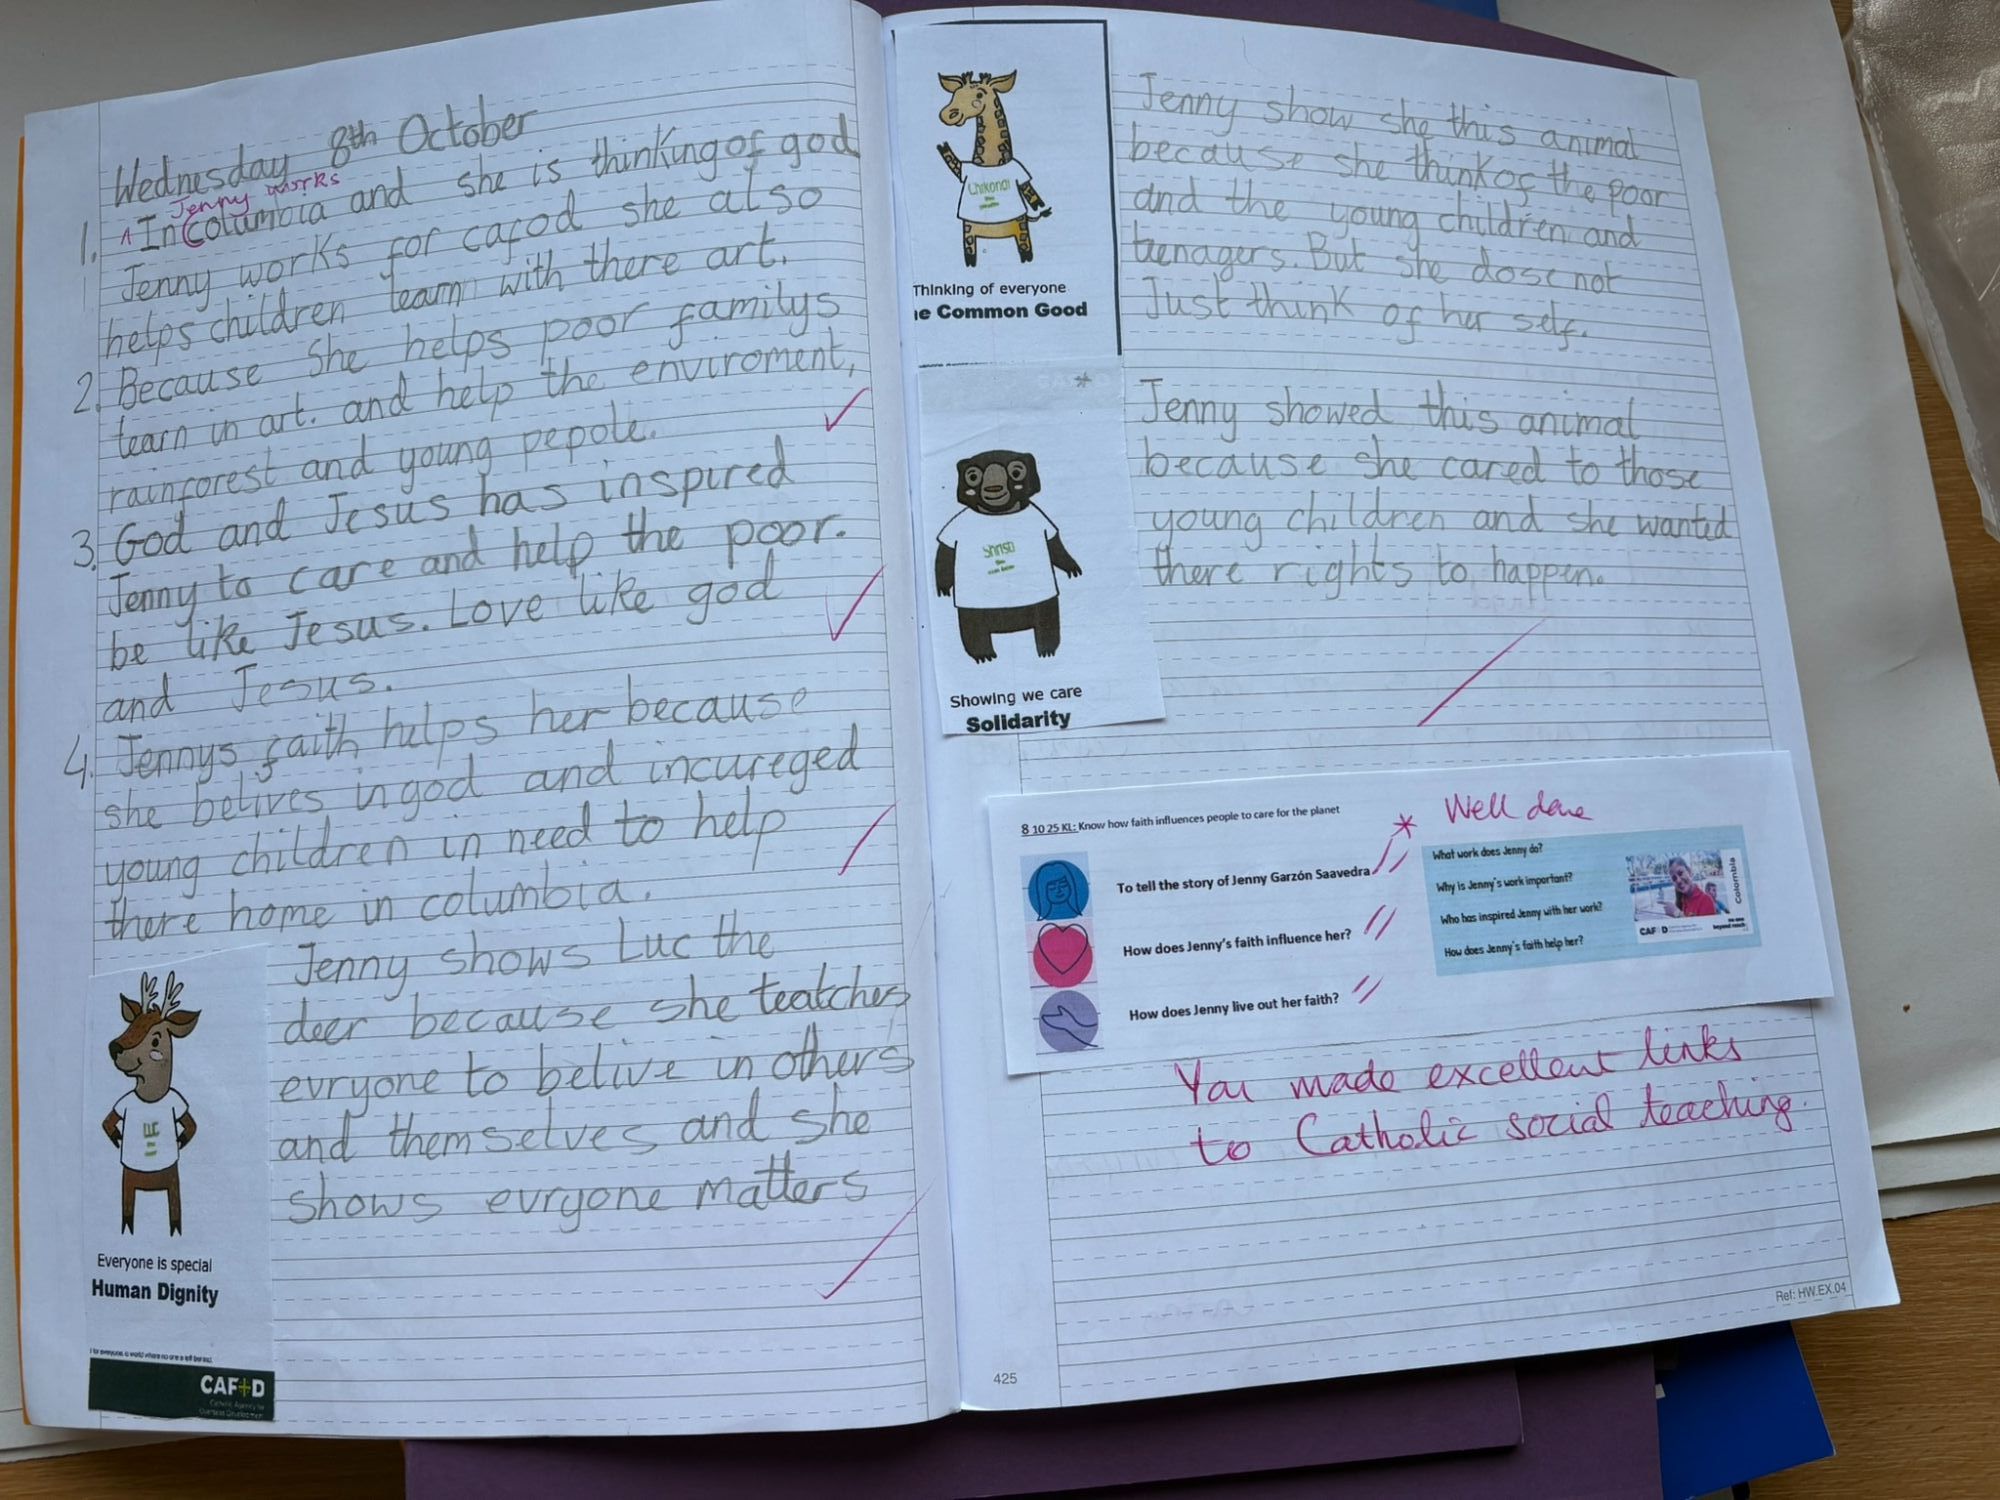 Wednesday 8th October
Jenny works
1. ^ In Columbia and she is thinking of god
Jenny works for cafod she also
helps children learn with there art.
2. Because She helps poor familys
learn in art. and help the enviroment,
rainforest and young pepole.
3. God and Jesus has inspired
Jenny to care and help the poor.
be like Jesus. Love like god
and Jesus.
4. Jennys faith helps her because
she belives in god and incureged
young children in need to help
there home in columbia.
Jenny shows Luc the
deer because she teatches
evryone to belive in others
and themselves and she
shows evryone matters
Everyone is special
Human Dignity
CAF+D
Catholic Agency for
Overseas Development
Chikondi
Thinking of everyone
e Common Good
Jenny show she this animal
because she think of the poor
and the young children and
teenagers. But she dose not
Just think of her self.
Showing we care
Solidarity
Jenny showed this animal
because she cared to those
young children and she wanted
there rights to happen.
8 10 25 KL: Know how faith influences people to care for the planet
* Well done
To tell the story of Jenny Garzón Saavedra
How does Jenny's faith influence her?
How does Jenny live out her faith?
What work does Jenny do?
Why is Jenny's work important?
Who has inspired Jenny with her work?
How does Jenny's faith help her?
Colombia
CAF+D
You made excellent links
to Catholic social teaching.
425
Ref: HW.EX.04